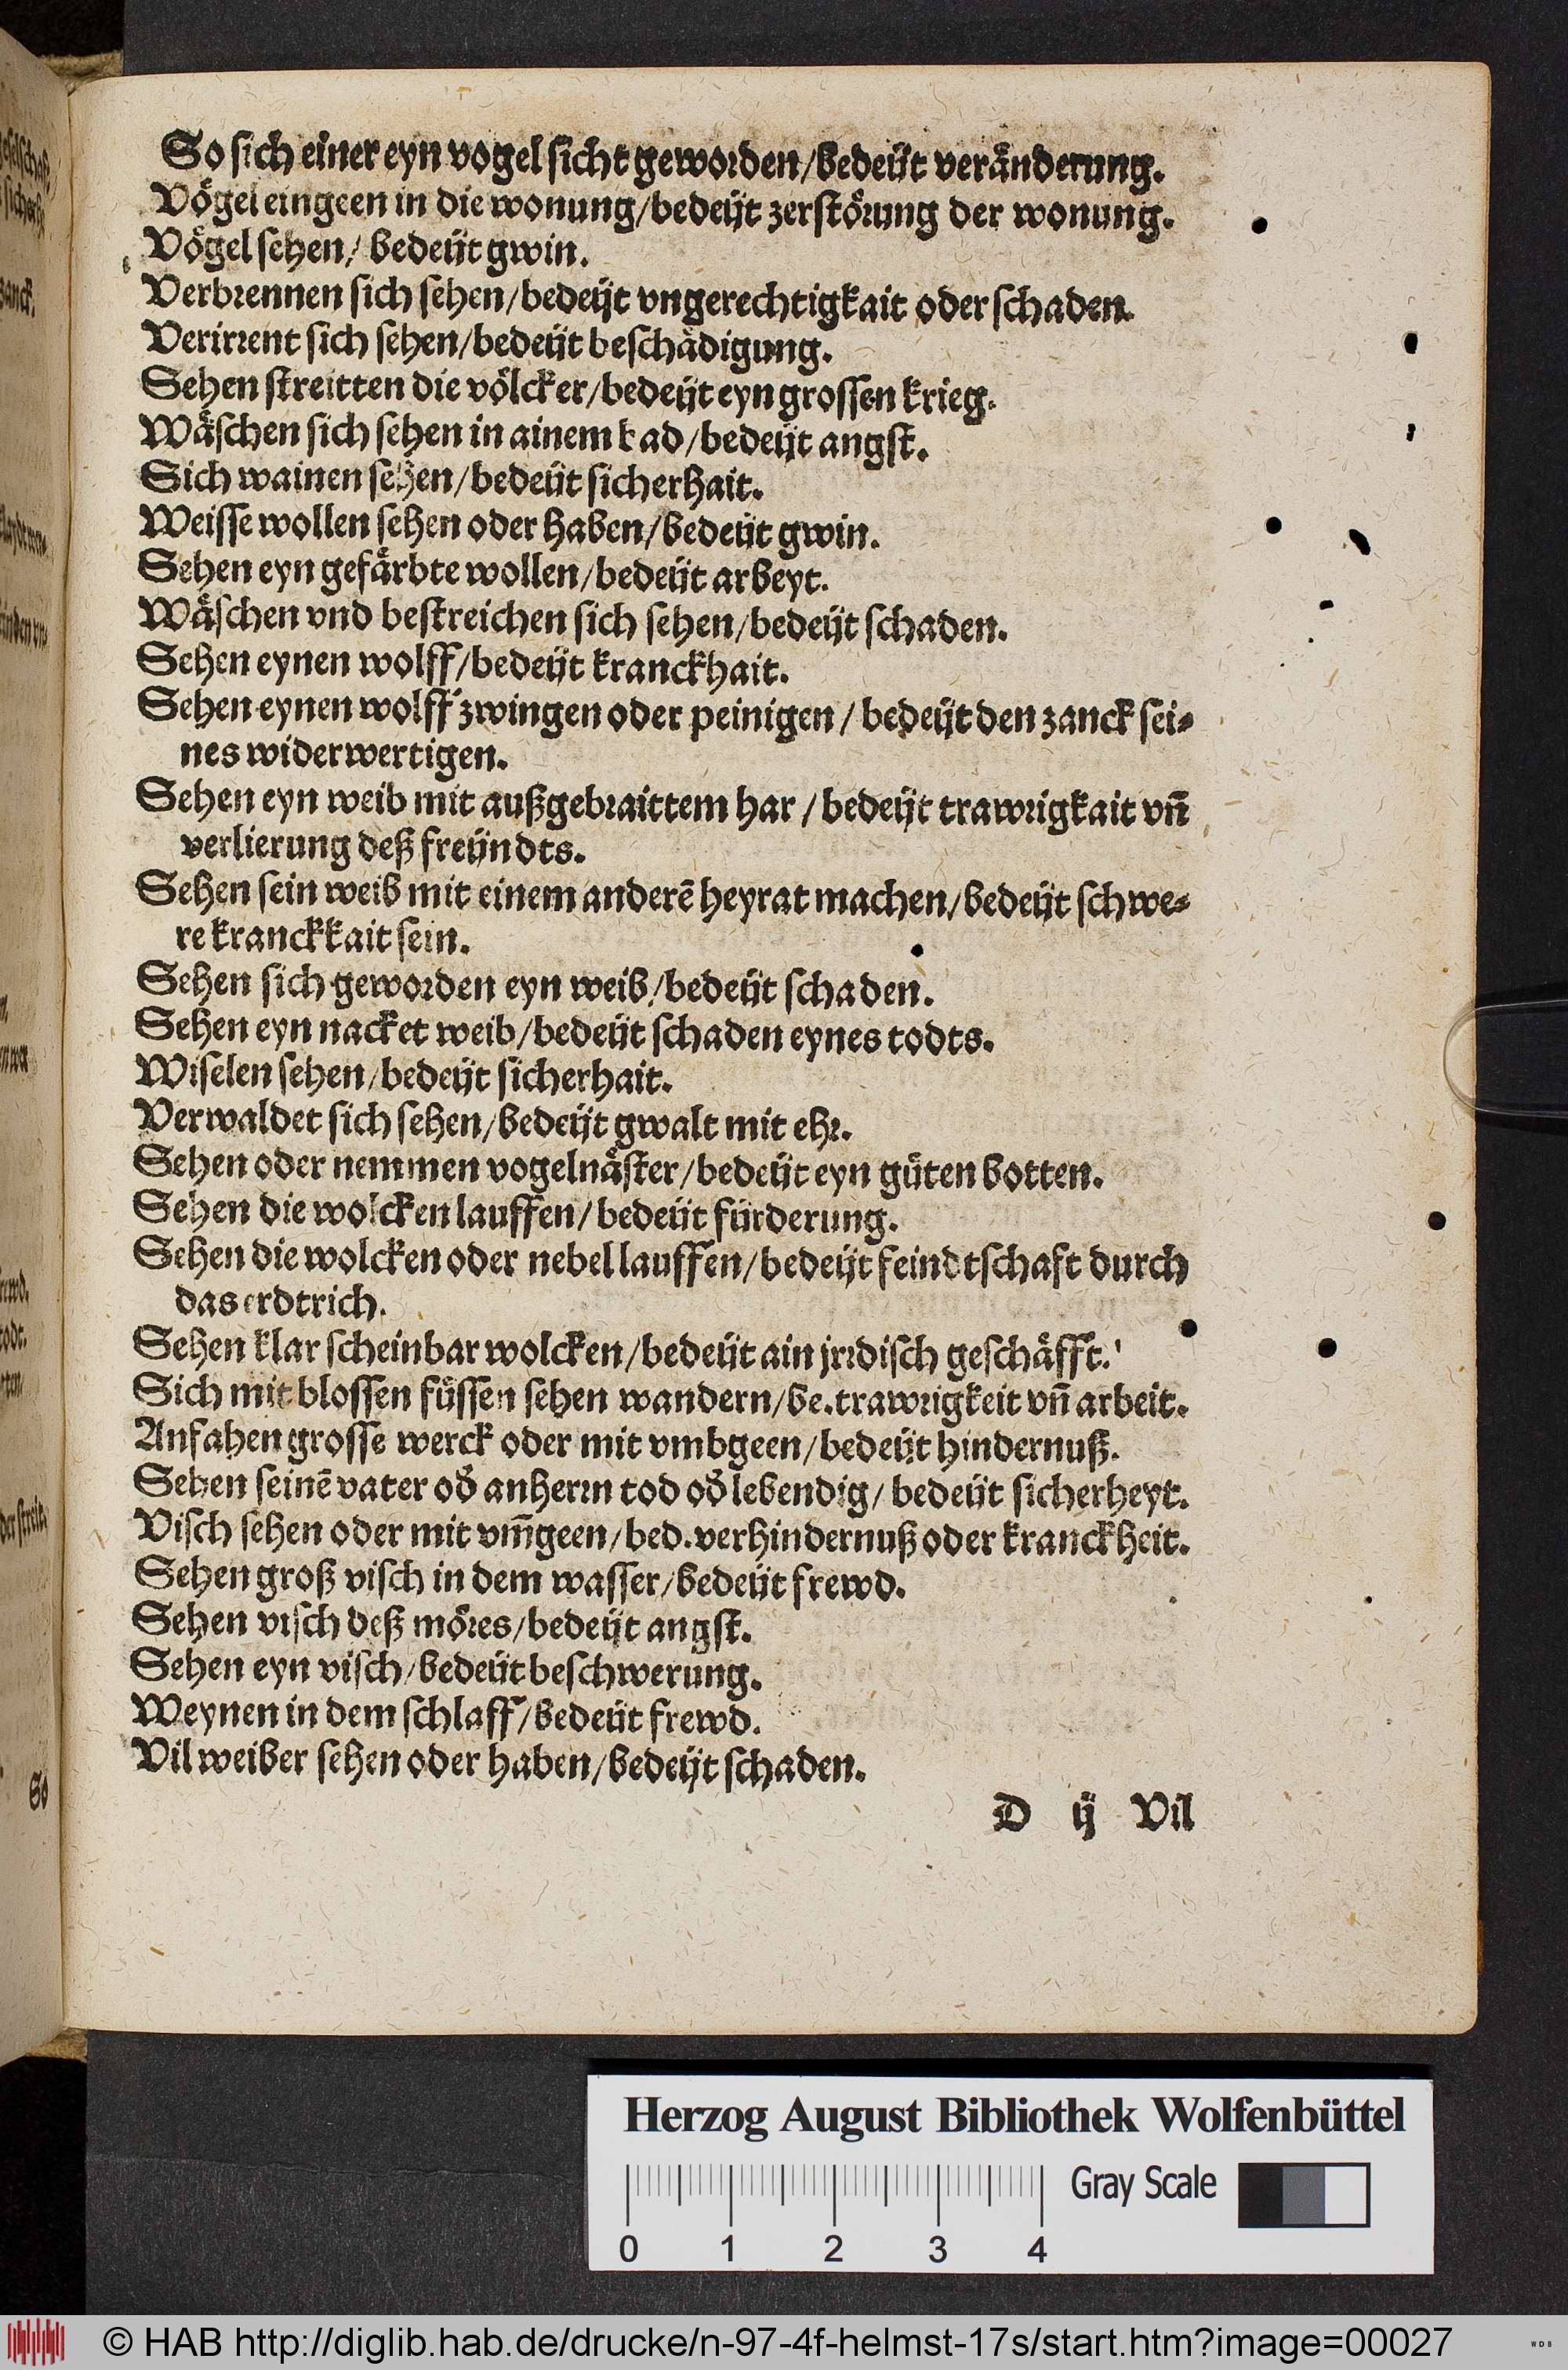 So sich einer eyn vogel sicht geworden/bedeüt veränderung.
Vögel eingeen in die wonung/bedeüt zerstörung der wonung.
Vögel sehen/ bedeüt gwin.
Verbrennen sich sehen/bedeüt vngerechtigkait oder schaden.
Verirrent sich sehen/bedeüt beschädigung.
Sehen streitten die völcker/bedeüt eyn grossen krieg.
Wäschen sich sehen in ainem bad/bedeüt angst.
Sich wainen sehen/bedeüt sicherhait.
Weisse wollen sehen oder haben/bedeüt gwin.
Sehen eyn gefärbte wollen/bedeüt arbeyt.
Wäschen vnd bestreichen sich sehen/bedeüt schaden.
Sehen eynen wolff/bedeüt kranckhait.
Sehen eynen wolff zwingen oder peinigen / bedeüt den zanck sei⸗
nes widerwertigen.
Sehen eyn weib mit außgebraittem har / bedeüt trawrigkait vñ
verlierung deß freündts.
Sehen sein weib mit einem anderẽ heyrat machen/bedeüt schwe⸗
re kranckkait sein.
Sehen sich geworden eyn weib/bedeüt schaden.
Sehen eyn nacket weib/bedeüt schaden eynes todts.
Wiselen sehen/bedeüt sicherhait.
Verwaldet sich sehen/bedeüt gwalt mit ehr.
Sehen oder nemmen vogelnäster/bedeüt eyn güten botten.
Sehen die wolcken lauffen/ bedeüt fürderung.
Sehen die wolcken oder nebel lauffen/bedeüt feindtschaft durch
das erdtrich.
Sehen klar scheinbar wolcken/bedeüt ain jrrdisch geschäfft.
Sich mit blossen füssen sehen wandern/be.trawrigkeit vñ arbeit.
Anfahen grosse werck oder mit vmbgeen/bedeüt hindernuß.
Sehen seinẽ vater od̓ anherrn tod od̓ lebendig/ bedeüt sicherheyt.
Visch sehen oder mit vm̃geen/bed.verhindernuß oder kranckheit.
Sehen groß visch in dem wasser/bedeüt frewd.
Sehen visch deß möres/bedeüt angst.
Sehen eyn visch/bedeüt beschwerung.
Weynen in dem schlaff/bedeüt frewd.
Vil weiber sehen oder haben/bedeüt schaden.
D ij Vil
So
Herzog August Bibliothek Wolfenbüttel
Gray Scale
0 1 2 3 4
© HAB http://diglib.hab.de/drucke/n-97-4f-helmst-17s/start.htm?image=00027
WDB